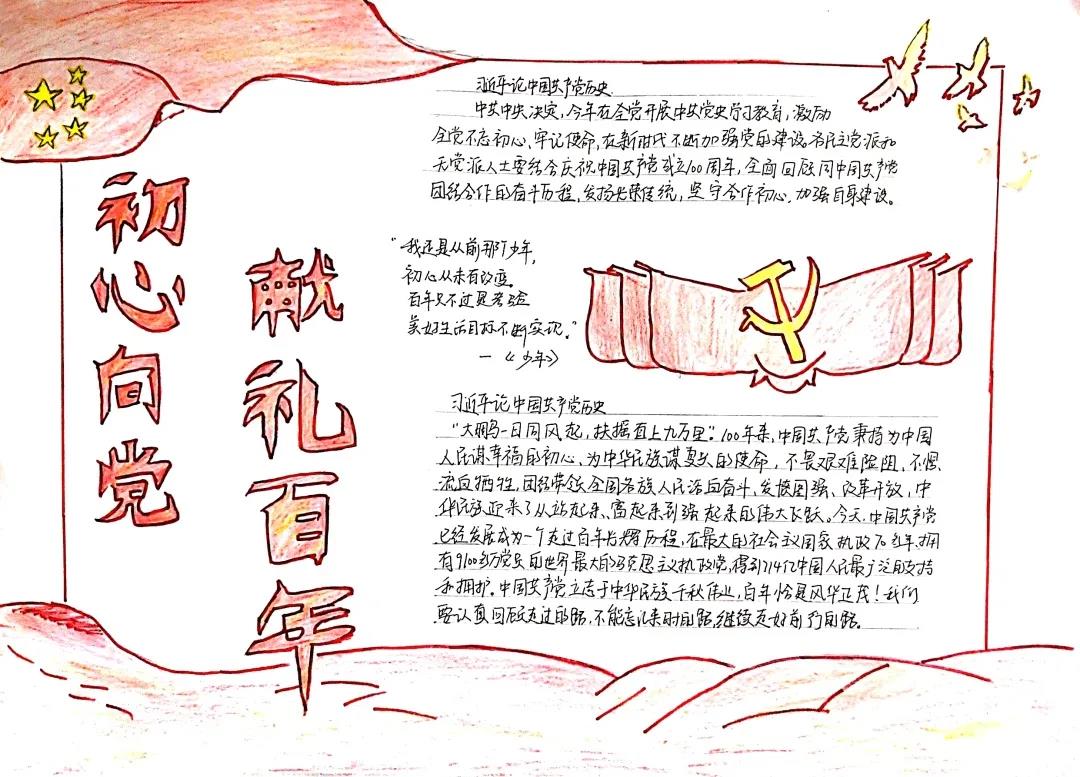 初心向党
献礼百年
习近平论中国共产党历史
中共中央决定，今年在全党开展中共党史学习教育，激励
全党不忘初心、牢记使命，在新时代不断加强党的建设。各民主党派和
无党派人士要结合庆祝中国共产党成立100周年，全面回顾同中国共产党
团结合作的奋斗历程，发扬光荣传统，坚守合作初心，加强自身建设。
“我还是从前那个少年，
初心从未有改变。
百年只不过是考验
美好生活目标不断实现。”
—《少年》
习近平论中国共产党历史
“大鹏一日同风起，扶摇直上九万里”。100年来，中国共产党秉持为中国
人民谋幸福的初心、为中华民族谋复兴的使命，不畏艰难险阻、不惧
流血牺牲，团结带领全国各族人民浴血奋斗、发愤图强、改革开放，中
华民族迎来了从站起来、富起来到强起来的伟大飞跃。今天，中国共产党
已经发展成为一个走过百年光辉历程，在最大的社会主义国家执政70多年，拥
有9100多万党员的世界最大的马克思主义执政党，得到了14亿中国人民最广泛的支持
和拥护。中国共产党立志于中华民族千秋伟业，百年恰是风华正茂！我们
要认真回顾走过的路，不能忘记来时的路，继续走好前行的路。